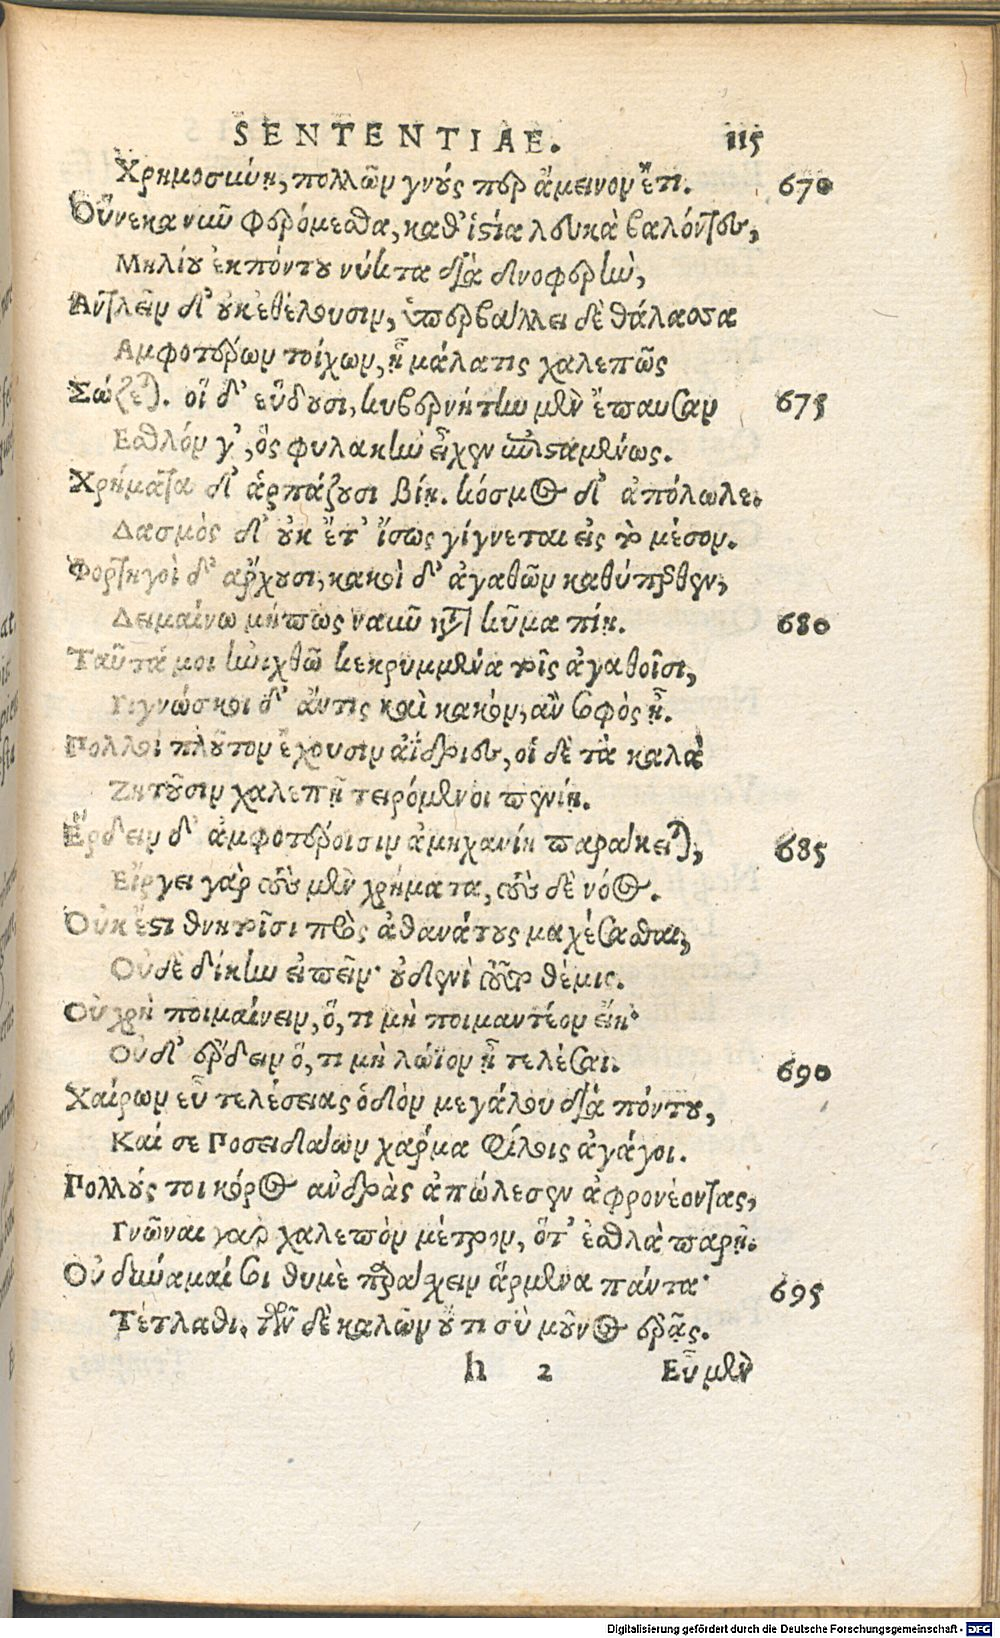 SENTENTIAE. 115
Χρημοσύνη, πολλῶν γνούς περ ἄμεινον ἔτι. 670
Οὕνεκα νῦν φερόμεσθα, καθ' ἱστία λευκὰ βαλόντες,
Μηλίου ἐκ πόντου νύκτα διὰ δνοφερὴν,
Αντλεῖν δ' οὐκ ἐθέλουσιν, ὑπερβάλλει δὲ θάλασσα
Αμφοτέρων τοίχων, ἦ μάλα τις χαλεπῶς
Σώζεται. οἳ δ' εὕδουσι, κυβερνήτην μὲν ἔπαυσαν 675
Εσθλόν γ', ὃς φυλακὴν εἶχεν ἐπισταμένως.
Χρήματα δ' ἁρπάζουσι βίῃ. κόσμος δ' ἀπόλωλε.
Δασμὸς δ' οὐκ ἔτ' ἴσως γίγνεται εἰς τὸ μέσον.
Φορτηγοὶ δ' ἄρχουσι, κακοὶ δ' ἀγαθῶν καθύπερθεν,
Δειμαίνω μήπως ναῦν κατὰ κῦμα πίῃ. 680
Ταῦτά μοι ᾐνίχθω κεκρυμμένα τοῖς ἀγαθοῖσι,
Γιγνώσκοι δ' ἄν τις καὶ κακόν, ἂν σοφὸς ᾖ.
Πολλοὶ πλοῦτον ἔχουσιν ἀΐδριες, οἱ δὲ τὰ καλὰ
Ζητοῦσιν χαλεπῇ τειρόμενοι πενίῃ.
Ερδειν δ' ἀμφοτέροισιν ἀμηχανίη παράκειται, 685
Εἴργει γὰρ τοὺς μὲν χρήματα, τοὺς δὲ νόος.
Οὐκ ἔστι θνητοῖσι πρὸς ἀθανάτους μαχέσασθαι,
Οὐδὲ δίκην εἰπεῖν· οὐδενὶ τοῦτο θέμις.
Οὐ χρὴ ποιμαίνειν, ὅ, τι μὴ ποιμαντέον εἴη·
Οὐδ' ἔρδειν ὅ, τι μὴ λώϊον ᾖ τελέσαι. 690
Χαίρων εὖ τελέσειας ὁδὸν μεγάλου διὰ πόντου,
Καί σε Ποσειδάων χάρμα φίλοις ἀγάγοι.
Πολλούς τοι κόρος ἄνδρας ἀπώλεσεν ἀφρονέοντας,
Γνῶναι γὰρ χαλεπὸν μέτρον, ὅτ' ἐσθλὰ παρῇ.
Οὐ δύναμαί σοι θυμὲ παρασχεῖν ἄρμενα πάντα· 695
Τέτλαθι. τῶν δὲ καλῶν οὔτι σὺ μοῦνος ἐρᾷς.
h 2 Εὖ μὲν
Digitalisierung gefördert durch die Deutsche Forschungsgemeinschaft - DFG